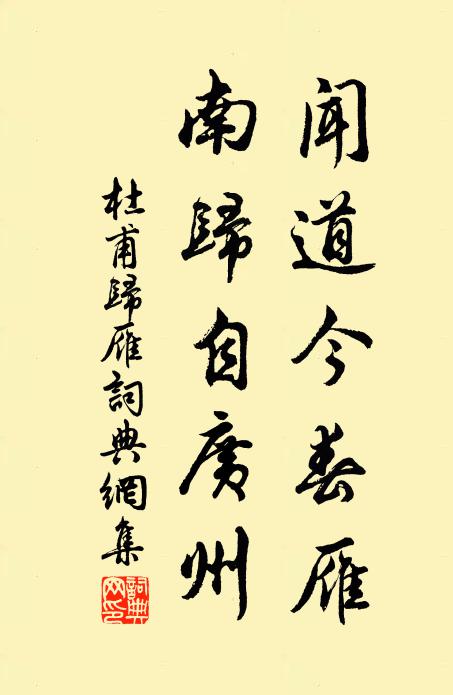 聞道今春雁
南歸自廣州
杜甫歸雁詞典網集
詞典網印